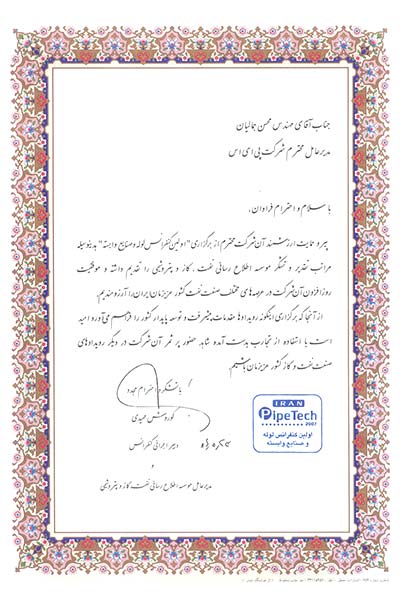 جناب آقای مهندس محسن جمالیان
مدیرعامل محترم شرکت پی ای اس
با سلام و احترام فراوان،
پیرو حمایت ارزشمند آن شرکت محترم از برگزاری "اولین کنفرانس لوله و صنایع وابسته" بدینوسیله
مراتب تقدیر و تشکر موسسه اطلاع رسانی نفت، گاز و پتروشیمی را تقدیم داشته و موفقیت
روزافزون آن شرکت در عرصه‌های مختلف صنعت نفت کشور عزیزمان ایران را آرزومندیم.
از آنجا که برگزاری اینگونه رویدادها مقدمات پیشرفت و توسعه پایدار کشور را فراهم می‌آورد امید
است با استفاده از تجارب بدست آمده شاهد حضور پر ثمر آن شرکت در دیگر رویدادهای
صنعت نفت و گاز کشور عزیزمان باشیم.
با تشکر و احترام مجدد
کوروش عبیدی
دبیر اجرائی کنفرانس
و
مدیرعامل موسسه اطلاع رسانی نفت، گاز و پتروشیمی
IRAN
PipeTech
2007
اولین کنفرانس لوله
و صنایع وابسته